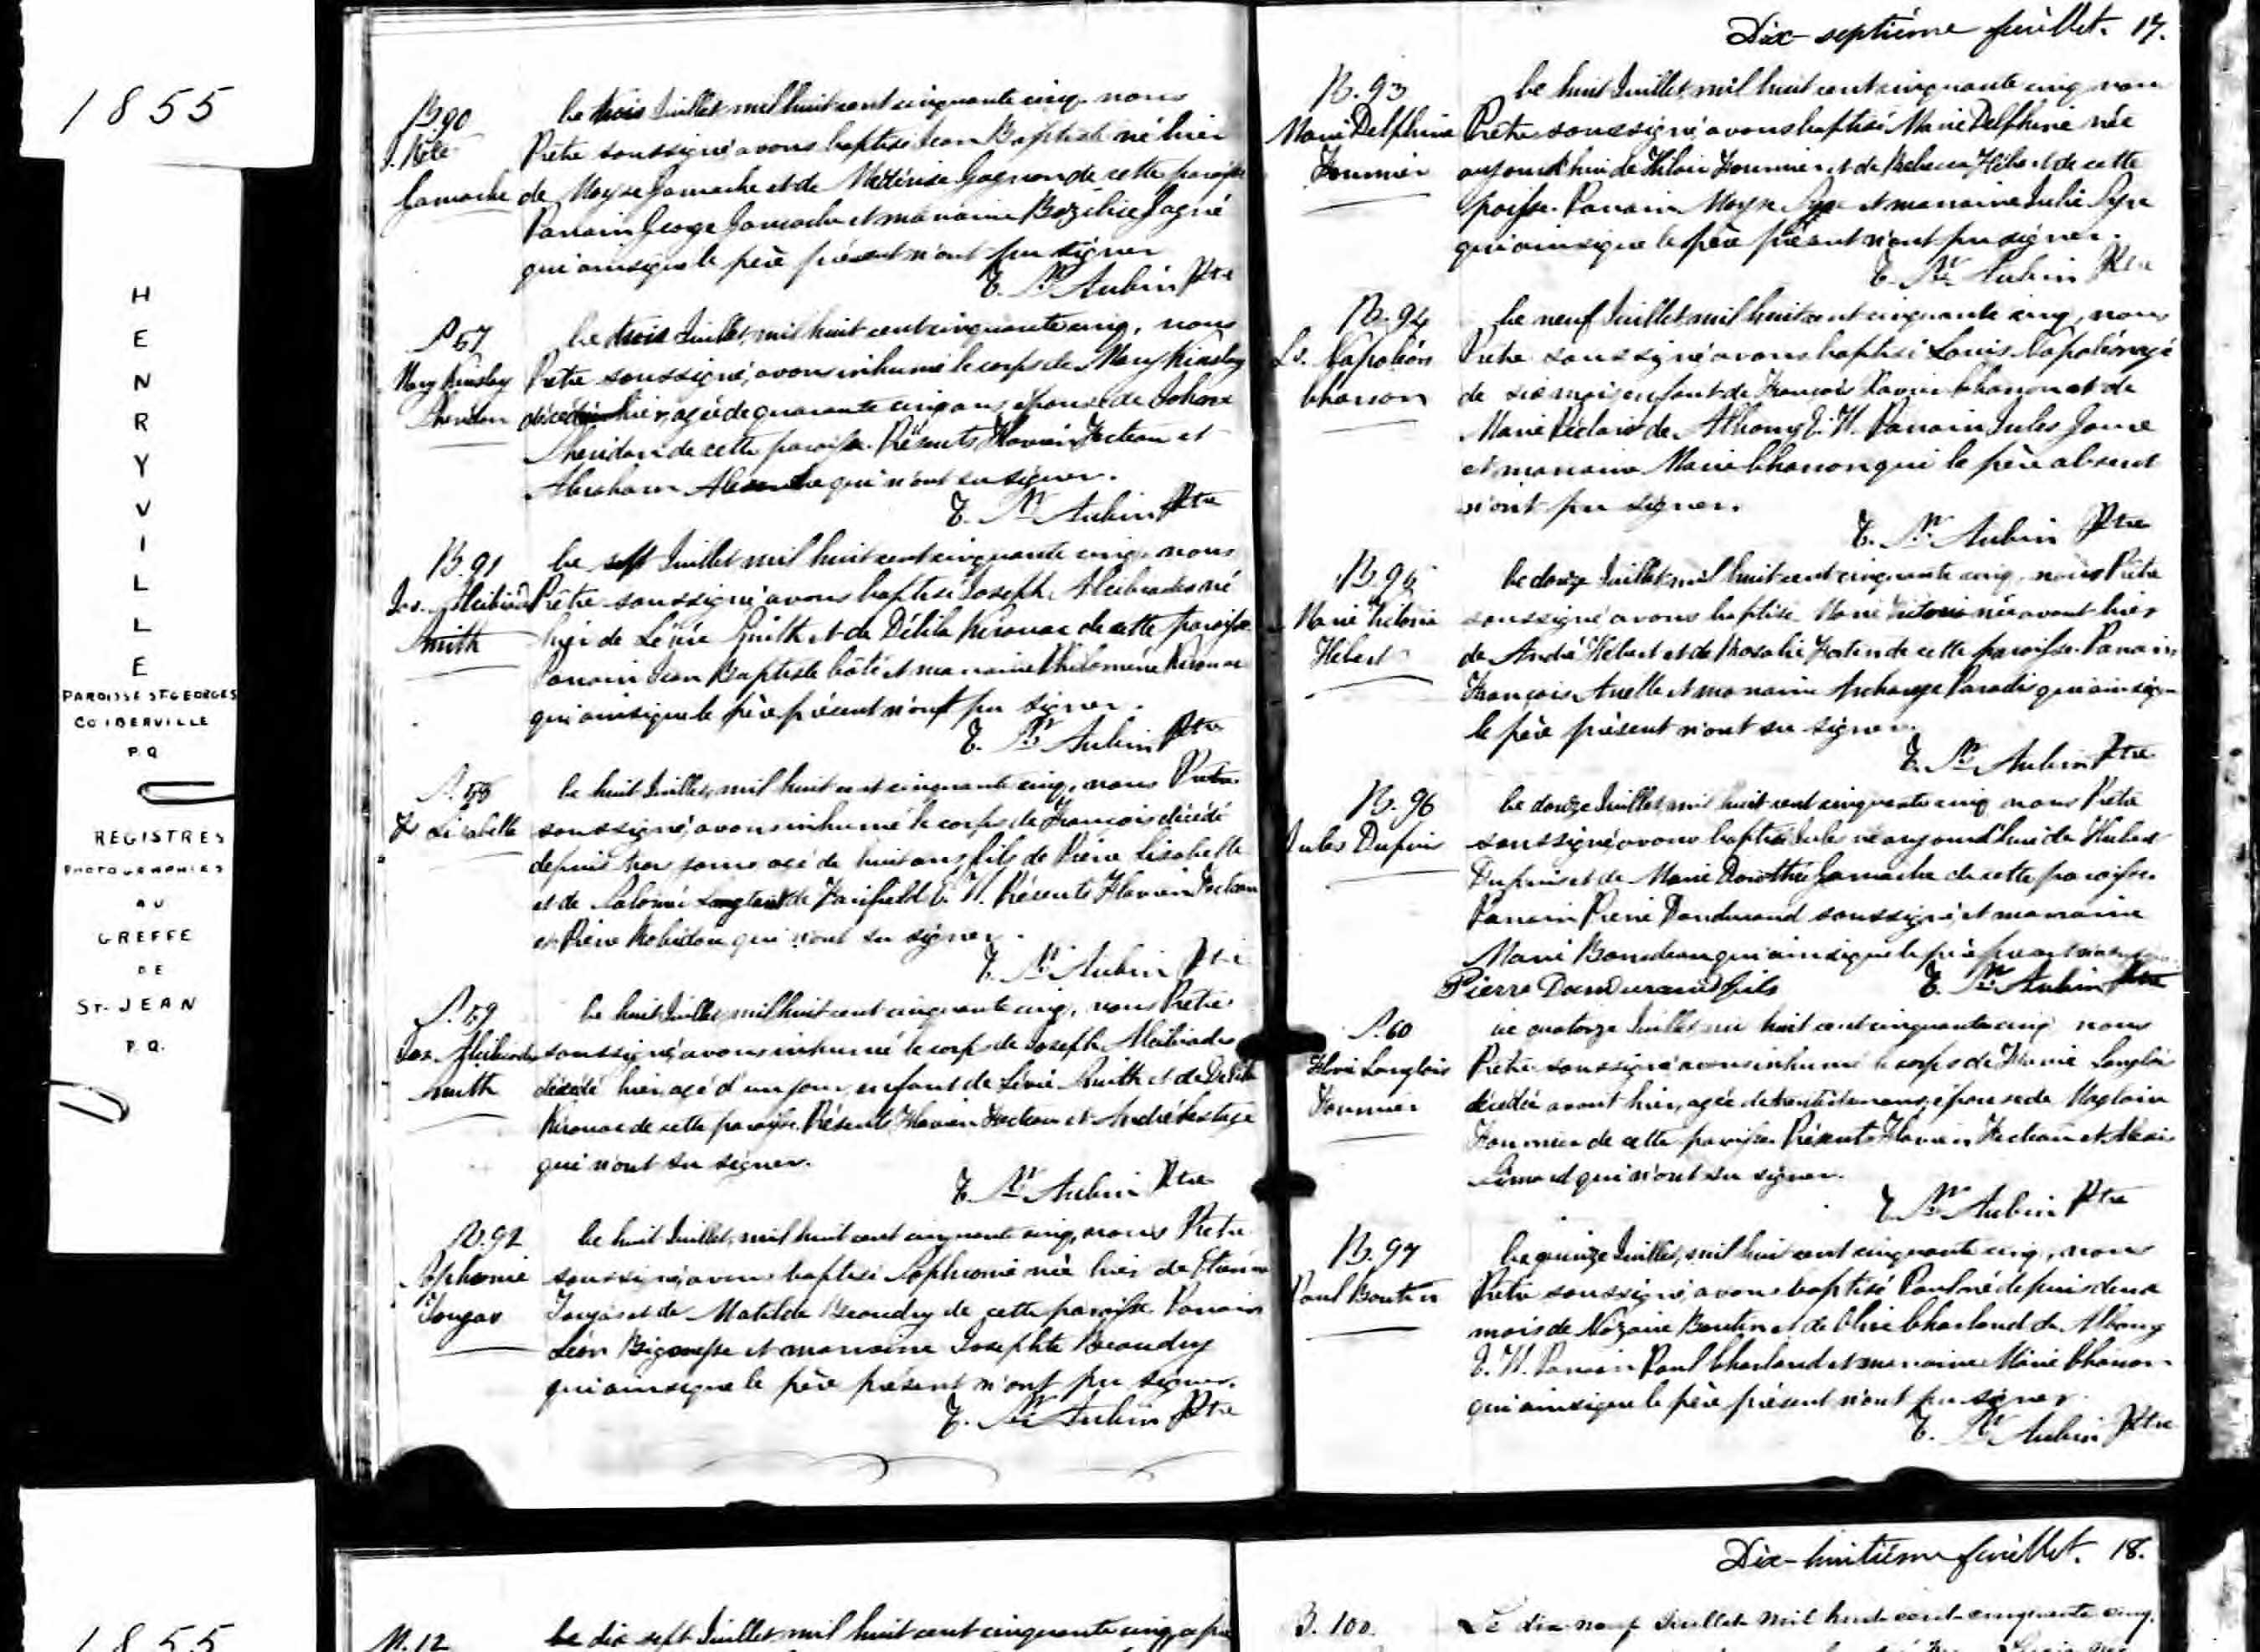 1855
HENRYVILLE
PAROISSE ST GEORGES
CO IBERVILLE
P Q
REGISTRES
PHOTOGRAPHIES
AU
GREFFE
DE
ST-JEAN
P.Q.
1855
B90
J. Bte
Gamache
Le trois Juillet mil huit cent cinquante cinq nous
Prêtre soussigné avons baptisé Jean Baptiste né hier
de Moyse Gamache et de Gagnon de cette paroisse
Parrain George Gamache et marraine Gagné
qui ainsique le père présent n'ont pu signer
St Aubin Ptre
S 57
Mary Kinsley
Sheridan
Le trois Juillet, mil huit cent cinquante cinq, nous
Prêtre soussigné, avons inhumé le corps de Mary Kinsley
décédée hier, agée de quarante cinq ans, épouse de Johone
Sheridan de cette paroisse. Présents Flavien Fecteau et
Abraham qui n'ont su signer.
St Aubin Ptre
B. 91
Jos. Alcibiade
Smith
Le sept Juillet mil huit cent cinquante cinq, nous
Prêtre soussigné avons baptisé Joseph Alcibiades né
hier de Smith et de Délila Kirouac de cette paroisse.
Parrain Jean Baptiste Côté et marraine Philomène Kirouac
qui ainsique le père présent n'ont pu signer.
St Aubin Ptre
S. 58
Fs Lisabelle
Le huit Juillet, mil huit cent cinquante cinq, nous Prêtre
soussigné, avons inhumé le corps de François décédé
depuis jours agé de huit ans fils de Pierre Lisabelle
et de Salomé de Fairfield E. U. Présents Flavien Fecteau
et Pierre Robidou qui n'ont su signer.
St Aubin Ptre
S. 59
Jos. Alcibiade
Smith
Le huit Juillet mil huit cent cinquante cinq, nous Prêtre
soussigné, avons inhumé le corps de Joseph Alcibiades
décédé hier agé d'un jour, enfant de Smith et de Délila
Kirouac de cette paroisse. Présents Flavien Fecteau et André Lestage
qui n'ont su signer.
St Aubin Ptre
B. 92
Sophronie
Le huit Juillet, mil huit cent cinquante cinq, nous Prêtre
soussigné, avons baptisé Sophronie née hier de Etienne
et de Matilde Beaudry de cette paroisse. Parrain
Léon Bigonesse et marraine Josephte Beaudry
qui ainsique le père présent n'ont pu signer.
St Aubin Ptre
Dix-septième feuillet. 17.
B. 93
Marie Delphine
Fournier
Le huit Juillet, mil huit cent cinquante cinq nous
Prêtre soussigné avons baptisé Marie Delphine née
aujourd'hui de Hilaire Fournier et de Rebecca Hébert de cette
poisse. Parrain Moyse et marraine Julie
qui ainsique le père présent n'ont pu signer.
St Aubin Ptre
B. 94
Ls. Napoléon
Chanon
Le neuf Juillet mil huit cent cinquante cinq, nous
Prêtre soussigné avons baptisé Louis Napoléon agé
de six mois, enfant de François Xavier Chanon et de
Marie de Albany E. U. Parrain Jules
et marraine Marie Chanon qui le père absent
n'ont pu signer.
St Aubin Ptre
B. 95
Marie Victorie
Hébert
Le douze Juillet, mil huit cent cinquante cinq, nous Prêtre
soussigné avons baptisé Marie Victorie née avant hier
de André Hébert et de Rosalie Fortin de cette paroisse. Parrain
François et marraine Archange Paradis qui ainsique
le père présent n'ont su signer.
St Aubin Ptre
B. 96
Jules Dupuis
Le douze Juillet, mil huit cent cinquante cinq nous Prêtre
soussigné, avons baptisé Jules né aujourd'hui de Hubert
Dupuis et de Marie Dorothée Gamache de cette paroisse.
Parrain Pierre Dandurand soussigné, et marraine
Marie qui ainsique le père présent
Pierre Dandurand fils St Aubin Ptre
S. 60
Langlois
Fournier
Le quatorze Juillet mil huit cent cinquante cinq nous
Prêtre soussigné avons inhumé le corps de Langlois
décédée avant hier, agée de ans, épouse de Magloire
Fournier de cette paroisse. Présents Flavien Fecteau et Alexis
qui n'ont su signer.
St Aubin Ptre
B. 97
Paul Boutin
Le quinze Juillet, mil huit cent cinquante cinq, nous
Prêtre soussigné, avons baptisé Paul né depuis deux
mois de Nazaire Boutin et de Olive Charland de Albany
E. U. Parrain Paul Charland et marraine Marie Chanon
qui ainsique le père présent n'ont pu signer.
St Aubin Ptre
M. 12
Le dix sept Juillet mil huit cent cinquante cinq, après
Dix-huitième feuillet. 18.
B. 100.
Le dix-neuf Juillet mil huit cent cinquante cinq,